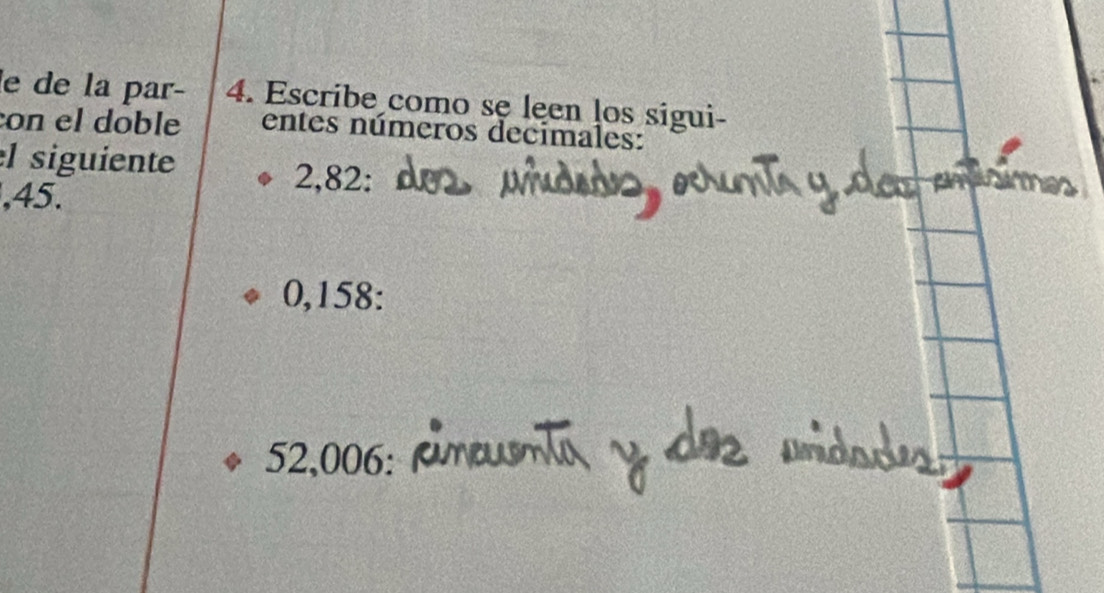 le de la par-
con el doble
el siguiente
,45.
4. Escribe como se leen los sigui-
entes números decimales:
2,82: dos unidades, ochenta y dos centésimas
0,158:
52,006: cincuenta y dos unidades,